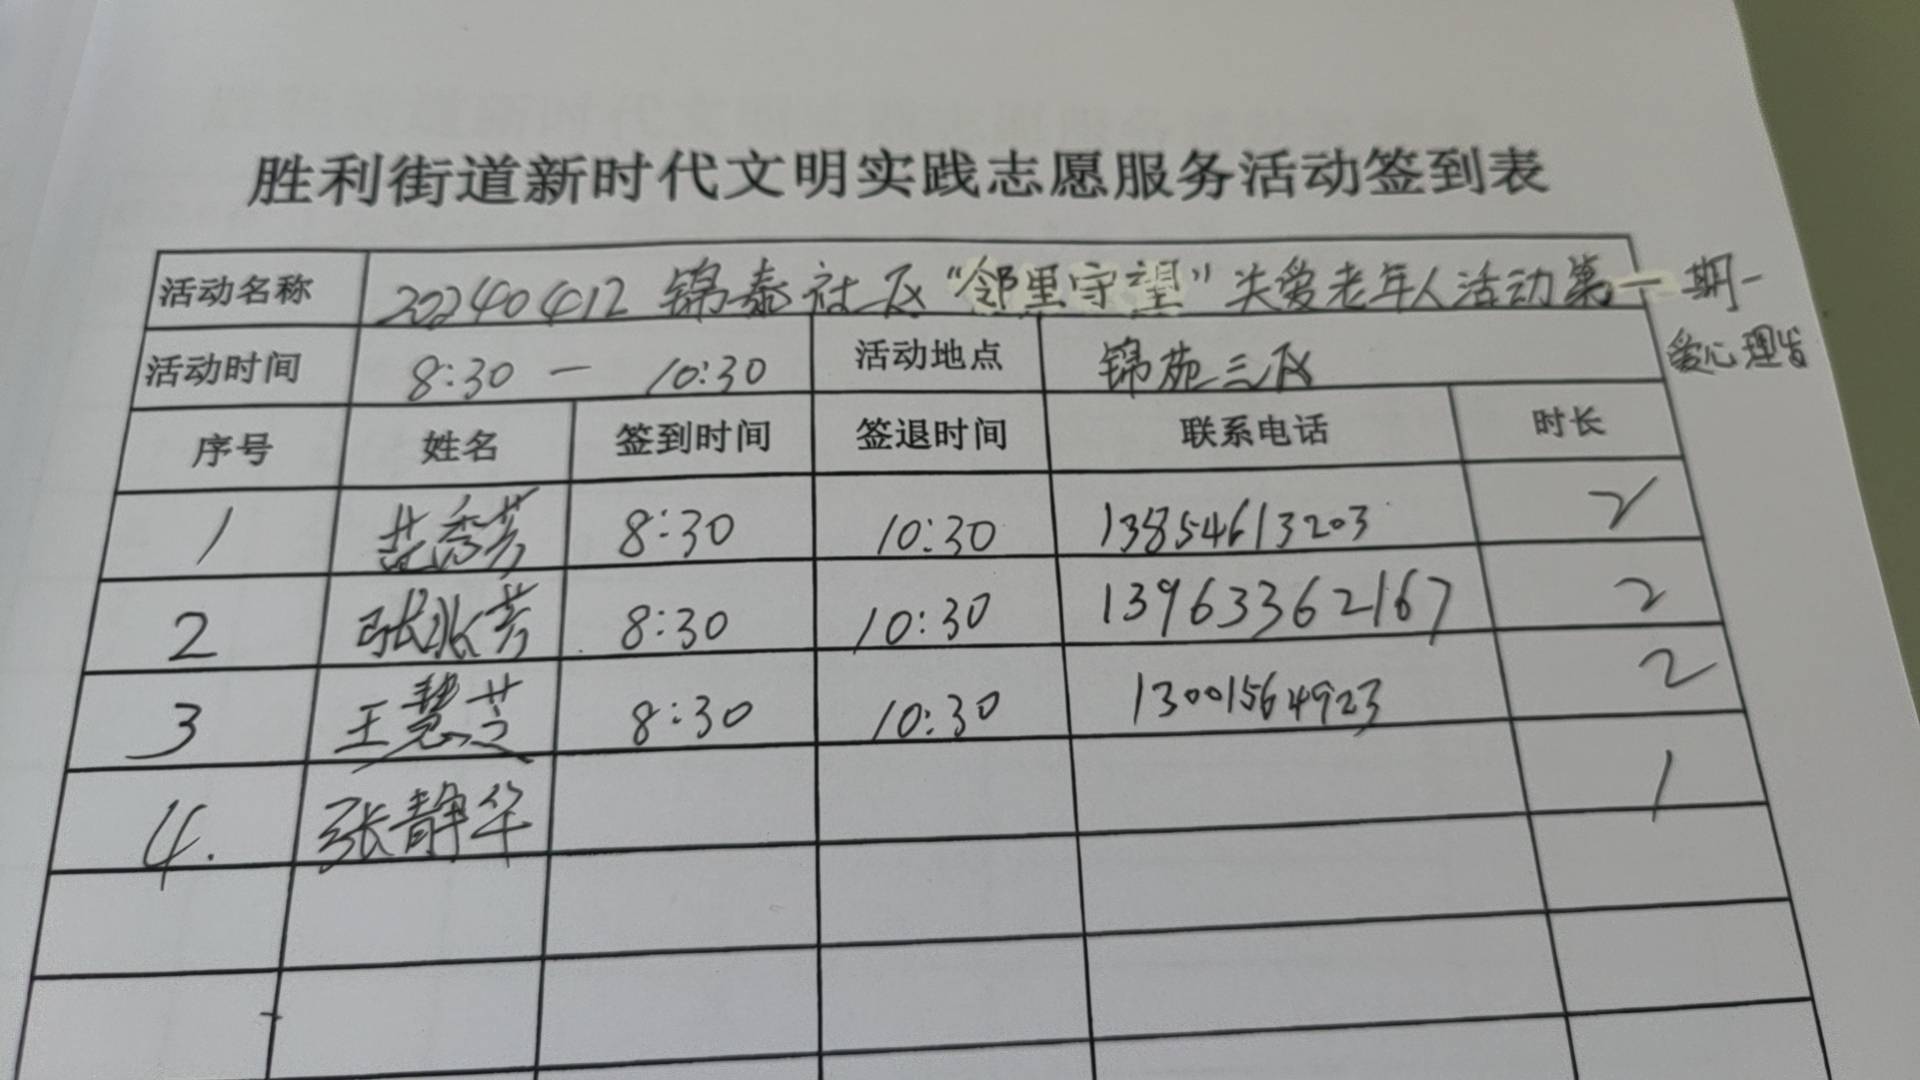 胜利街道新时代文明实践志愿服务活动签到表
活动名称 20240412 锦泰社区“邻里守望”关爱老年人活动第一期-
爱心理发
活动时间 8:30 — 10:30 活动地点 锦苑三区
序号 姓名 签到时间 签退时间 联系电话 时长
1 秀芳 8:30 10:30 13854613203 2
2 张兆芳 8:30 10:30 13963362167 2
3 王慧芝 8:30 10:30 13001564923 2
4. 张静华 1